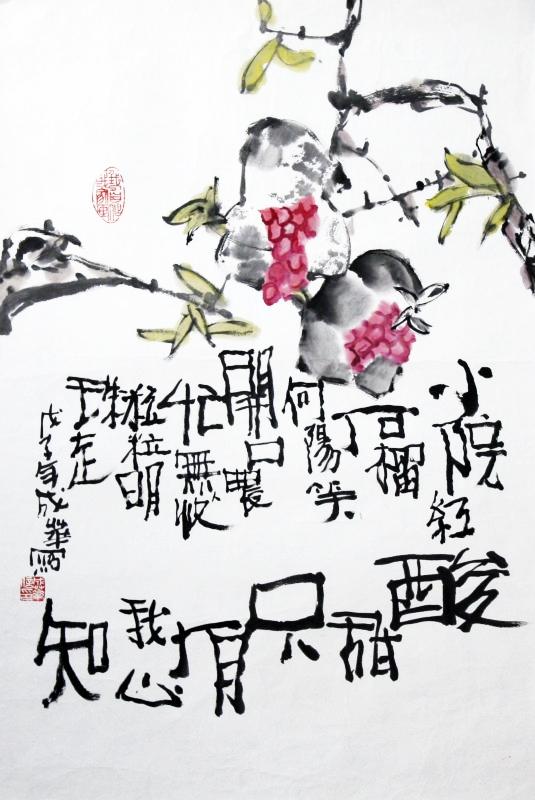 小院紅
石榴
何陽笑
開口農
忙無收
粒粒明
珠走
酸甜只有我心知
戊子年成華寫